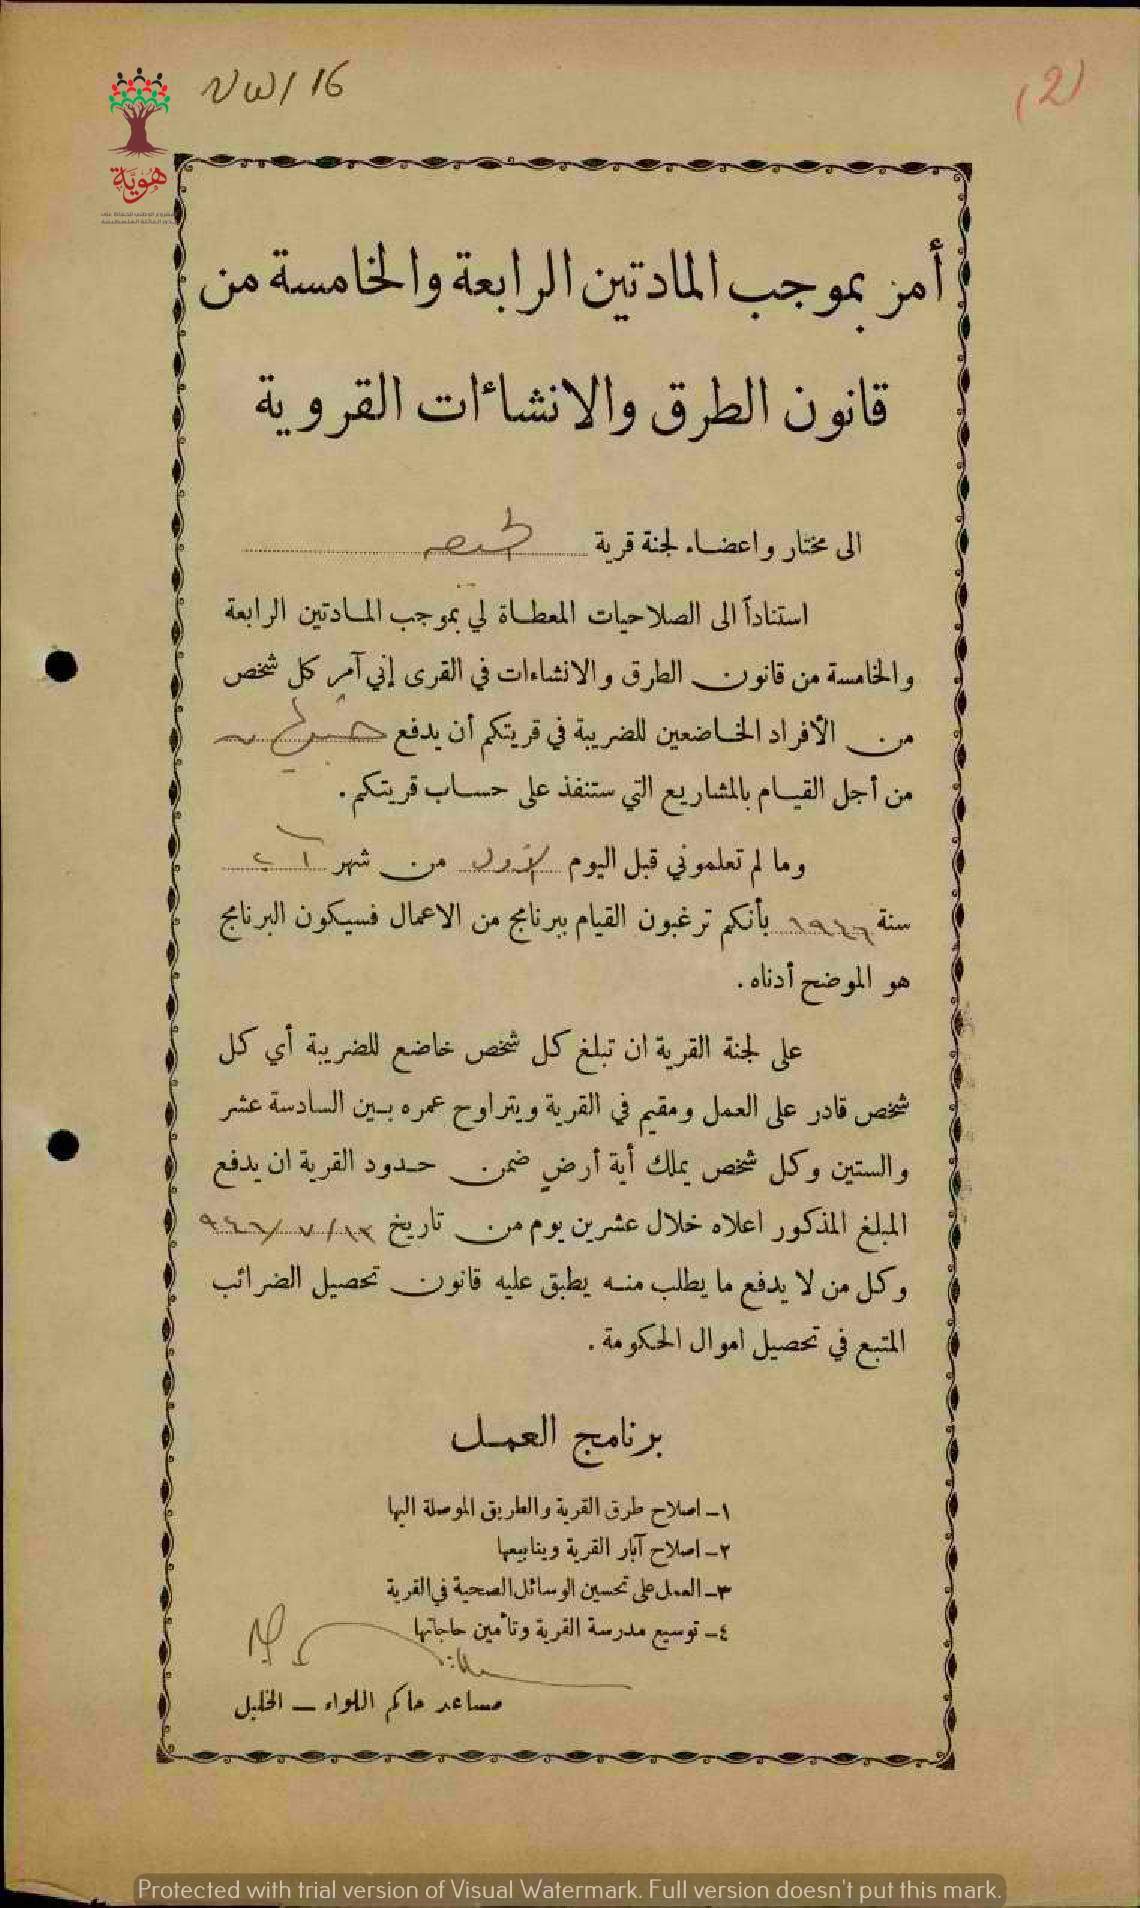 16
(2)
هوية
أمر بموجب المادتين الرابعة والخامسة من
قانون الطرق والانشاءات القروية
الى مختار واعضاء لجنة قرية
استناداً الى الصلاحيات المعطاة لي بموجب المادتين الرابعة
والخامسة من قانون الطرق والانشاءات في القرى إني آمر كل شخص
من الأفراد الخاضعين للضريبة في قريتكم أن يدفع
من أجل القيام بالمشاريع التي ستنفذ على حساب قريتكم .
وما لم تعلموني قبل اليوم الاول من شهر آب
سنة ١٩٤٦ بأنكم ترغبون القيام ببرنامج من الاعمال فسيكون البرنامج
هو الموضح أدناه .
على لجنة القرية ان تبلغ كل شخص خاضع للضريبة أي كل
شخص قادر على العمل ومقيم في القرية ويتراوح عمره بين السادسة عشر
والستين وكل شخص يملك أية أرض ضمن حدود القرية ان يدفع
المبلغ المذكور اعلاه خلال عشرين يوم من تاريخ ١٣/ ٧ /٩٤٦
وكل من لا يدفع ما يطلب منه يطبق عليه قانون تحصيل الضرائب
المتبع في تحصيل اموال الحكومة .
برنامج العمل
١- اصلاح طرق القرية والطريق الموصلة اليها
٢- اصلاح آبار القرية وينابيعها
٣- العمل على تحسين الوسائل الصحية في القرية
٤- توسيع مدرسة القرية وتأمين حاجاتها
مساعد حاكم اللواء - الخليل
Protected with trial version of Visual Watermark. Full version doesn't put this mark.